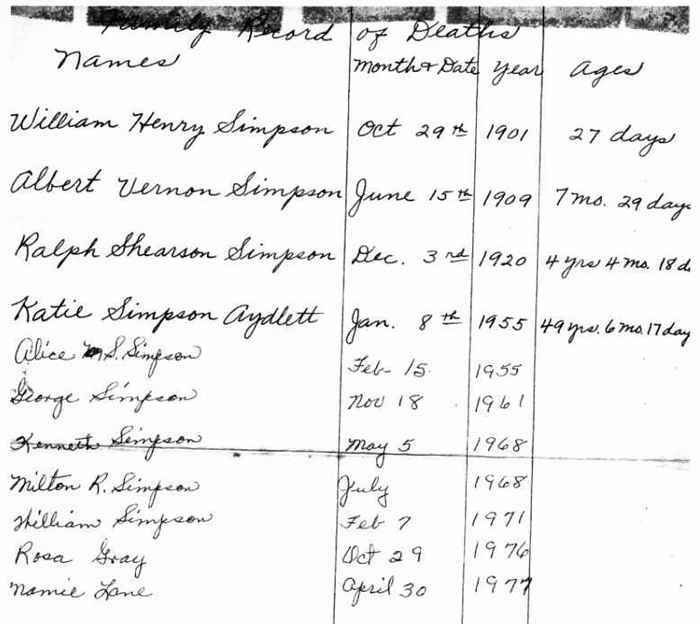 Family Record of Deaths
Names Month & Date Year Ages
William Henry Simpson Oct 29th 1901 27 days
Albert Vernon Simpson June 15th 1909 7 mo. 29 days
Ralph Shearson Simpson Dec. 3rd 1920 4 yrs 4 mo. 18 d
Katie Simpson Aydlett Jan. 8th 1955 49 yrs. 6 mo. 17 day
Alice S. Simpson Feb- 15. 1955
George Simpson Nov 18 1961
Kenneth Simpson May 5 1968
Milton R. Simpson July 1968
William Simpson Feb 7 1971
Rosa Gray Oct 29 1976
Namie Lane April 30 1977